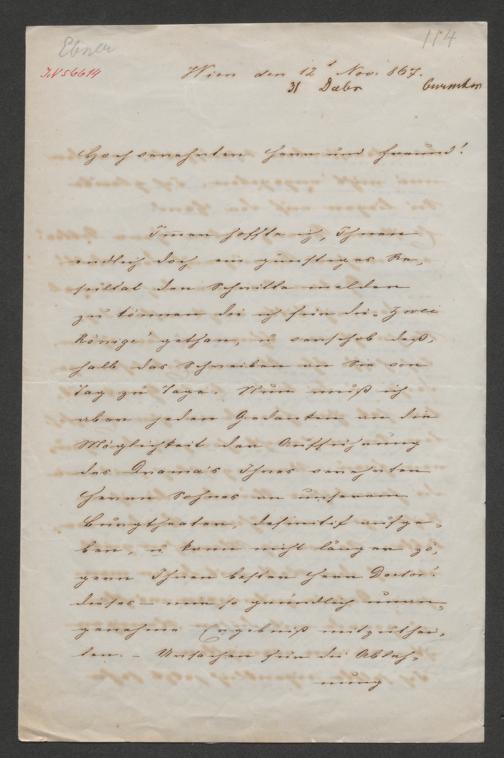 Ebner
154
IN 56614
Wien den 12t Nov. 867.
31 Dzbr
Hochverehrter Herr und Freund!
Immer hoffte ich, Ihnen
endlich doch ein günstiges Re-
sultat der Schritte melden
zu können die ich für die „zwei
Könige“ gethan, u verschob deß-
halb das Schreiben an Sie von
Tag zu Tage. Nun muß ich
aber jeden Gedanken an die
Möglichkeit der Aufführung
des Drama's Ihres verehrten
Herrn Sohnes an unserem
Burgtheater, definitif aufge-
ben, u kann nicht länger zö-
gern Ihnen bester Herr Doctor!
dieses – mir so gründlich unan-
genehme Ergebniß mitzuthei-
len. – Ursachen für die Ableh-
nung